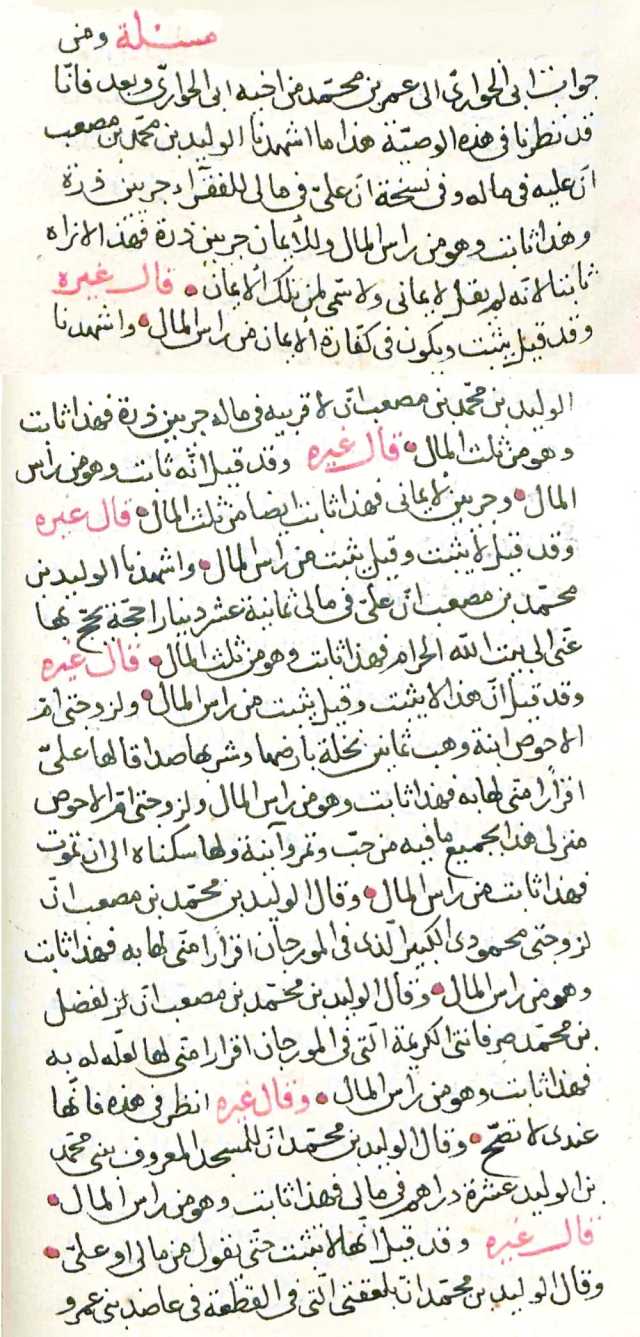 مسئلة ومن
جواب ابى الحوارىّ الى عمر بن محمّد من اخيه ابى الحوارىّ وبعد فانّا
قد نظرنا فى هذه الوصيّة هذا ما اشهدنا الوليد بن محمّد بن مصعب
انّ عليه فى ماله وفى نسخة انّ علىّ فى مالى للفقرآء جريبىن ذرة
وهذا ثابت وهو من راس المال وللأيمان جريبىن ذرة فهذا لا نراه
ثابتا لانّه لم يقل لايمانى ولا سمّى لمن تلك الايمان قال غيره
وقد قيل يثبت ويكون فى كفّارة الايمان من راس المال واشهدنا
الوليد بن محمّد بن مصعب انّ لاقربيه فى ماله جريبىن ذرة فهذا ثابت
وهو من ثلث المال قال غيره وقد قيل انّه ثابت وهو من راس
المال وجريبىن لايمانى فهذا ثابت ايضا من ثلث المال قال غيره
وقد قيل لا يثبت وقيل يثبت من راس المال واشهدنا الوليد بن
محمّد بن مصعب انّ علىّ فى مالى ثمانية عشر دينارا حجّة يحجّ بها
عنّى الى بيت الله الحرام فهذا ثابت وهو من ثلث المال قال غيره
وقد قيل انّ هذا لا يثبت وقيل يثبت من راس المال ولزوجتى امّ
الاحوص ابنة وهب ثمانين نخلة بارضها وشربها صداقا لها علىّ
اقرارا منّى لها به فهذا ثابت وهو من راس المال ولزوجتى امّ الاحوص
منزلى هذا بجميع ما فيه من حبّ وتمر وآنية ولها سكناه الى ان تموت
فهذا ثابت من راس المال وقال الوليد بن محمّد بن مصعب انّ
لزوجتى محمودى الكبير الّذى فى المورجان اقرارا منّى لها به فهذا ثابت
وهو من راس المال وقال الوليد بن محمّد بن مصعب انّ لفضل
بن محمّد صرفانتى الكريمة الّتى فى المورجان اقرارا منّى لها لعلّه له به
فهذا ثابت وهو من راس المال وقال غيره انظر فى هذه فانّها
عندى لا تصحّ وقال الوليد بن محمّد انّ للمسجد المعروف ببنى محمّد
بن الوليد عشرة دراهم فى مالى فهذا ثابت وهو من راس المال
قال غيره وقد قيل انّها لا تثبت حتّى يقول من مالى او علىّ
وقال الوليد بن محمّد انّ بلعقتى الّتى فى القطعة فى عاضد بنى عمرو